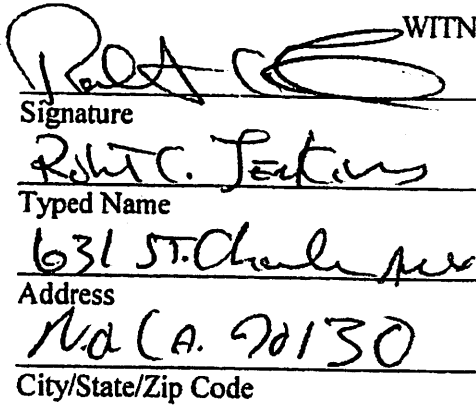 WITN
Signature
Robert C. Jenkins
Typed Name
631 ST. Charles Ave
Address
N.O. LA. 70130
City/State/Zip Code